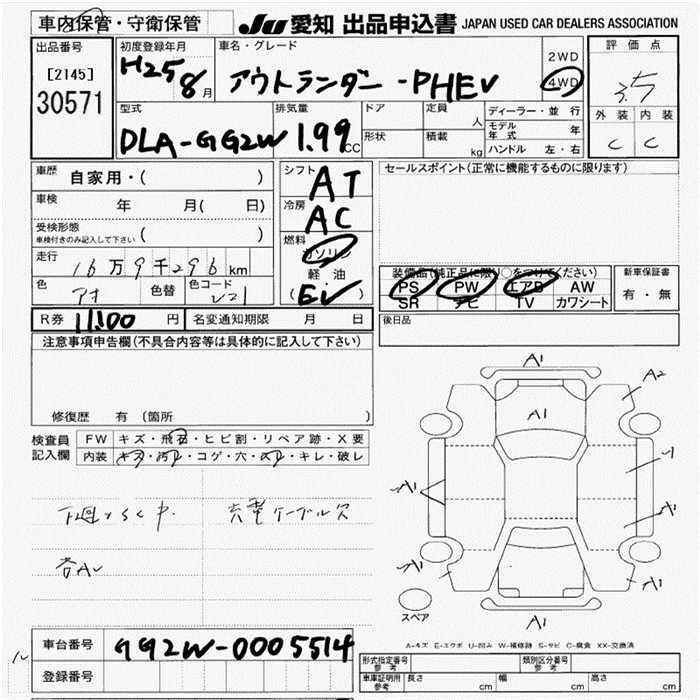 車内保管・守衛保管
JU 愛知 出品申込書 JAPAN USED CAR DEALERS ASSOCIATION
出品番号
[2145]
30571
初度登録年月
H25 8月
車名・グレード
アウトランダー -PHEV
2WD
4WD
評価点
3.5
外装 内装
C C
型式
DLA-GG2W
排気量
1.99 CC
ドア
形状
定員 人
積載 kg
ディーラー・並行
モデル年式 年
ハンドル 左・右
車歴 自家用・( )
車検 年 月( 日)
受検形態
車検付きのみ記入して下さい
走行 16万9千296km
色 アオ
色替
色コード
シフト AT
冷房 AC
燃料
ガソリン
軽油
(EV)
セールスポイント(正常に機能するものに限ります)
装備品(純正品に限り○をつけてください)
PS PW エアB AW
SR ナビ TV カワシート
新車保証書
有・無
R券 11100 円
名変通知期限 月 日
後日品
注意事項申告欄(不具合内容等は具体的に記入して下さい)
修復歴 有 〔箇所
検査員記入欄
FW キズ・飛石・ヒビ割・リペア跡・X要
内装 キズ・汚レ・コゲ・穴・スレ・キレ・破レ
下廻りSC中. 充電ケーブル欠
各AU
A1
A1
A2
A1
A1
A1
A1
A1
スペア
A-キズ E-エクボ U-凹み W-補修跡 S-サビ C-腐食 XX-交換済
車台番号 GG2W-0005514
登録番号
形式指定番号 参考
類別区分番号 参考
車庫証明用 参考
長さ cm
幅 cm
高さ cm